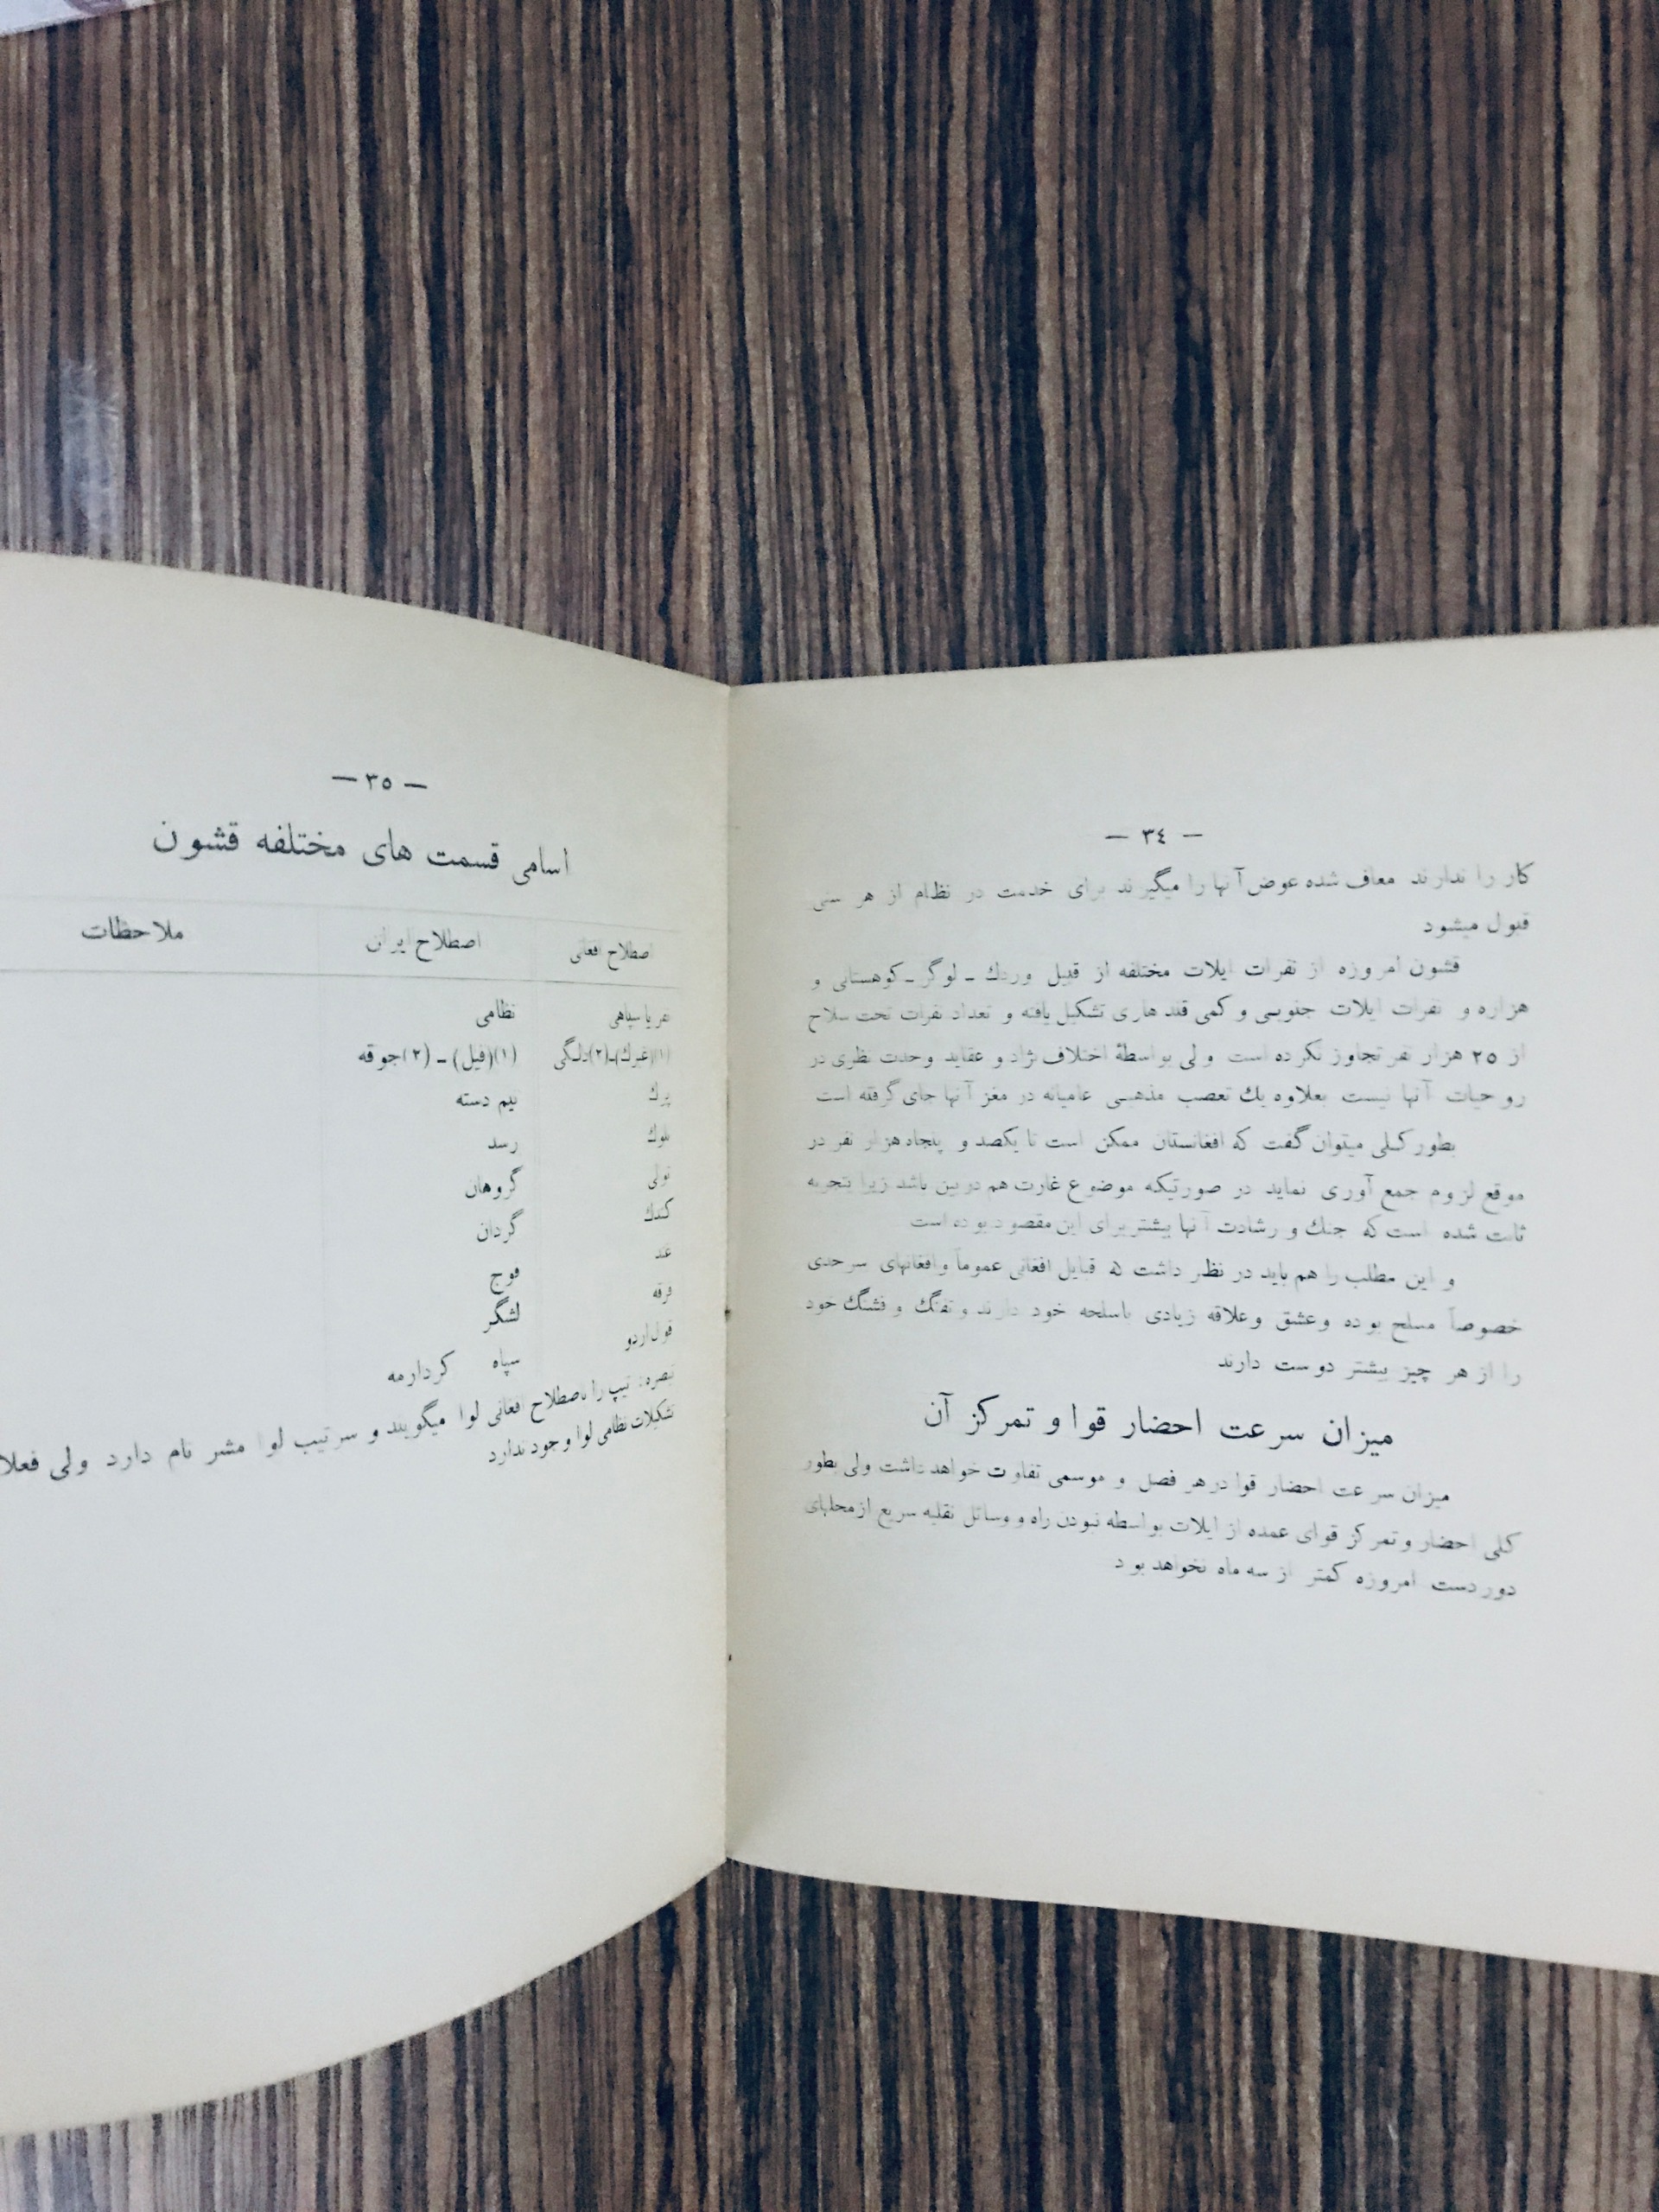 — ٣٤ —
كار را ندارند معاف شده عوض آنها را ميگيرند براى خدمت در نظام از هر سنى
قبول ميشود
قشون امروزه از نفرات ايلات مختلفه از قبيل وردك ـ لوگر ـ كوهستانى و
هزاره و نفرات ايلات جنوبى و كمى قندهارى تشكيل يافته و تعداد نفرات تحت سلاح
از ٢٥ هزار نفر تجاوز نكرده است ولى بواسطهٔ اختلاف نژاد و عقايد وحدت نظرى در
روحيات آنها نيست بعلاوه يك تعصب مذهبى عاميانه در مغز آنها جاى گرفته است
بطور كلى ميتوان گفت كه افغانستان ممكن است تا يكصد و پنجاه هزار نفر در
موقع لزوم جمع آورى نمايد در صورتيكه موضوع غارت هم در بين باشد زيرا بتجربه
ثابت شده است كه جنك و رشادت آنها بيشتر براى اين مقصود بوده است
و اين مطلب را هم بايد در نظر داشت كه قبايل افغانى عموماً و افغانهاى سرحدى
خصوصاً مسلح بوده و عشق و علاقه زيادى باسلحه خود دارند و تفنگ و فشنگ خود
را از هر چيز بيشتر دوست دارند
ميزان سرعت احضار قوا و تمركز آن
ميزان سرعت احضار قوا در هر فصل و موسمى تفاوت خواهد داشت ولى بطور
كلى احضار و تمركز قواى عمده از ايلات بواسطه نبودن راه و وسائل نقليه سريع از محلهاى
دوردست امروزه كمتر از سه ماه نخواهد بود
— ٣٥ —
اسامى قسمت هاى مختلفه قشون
اصطلاح افغانى اصطلاح ايران ملاحظات
نفر يا سپاهى نظامى
(١)(غبرك)ـ(٢)دلگى (١)(فيل) ـ (٢)جوقه
پرك نيم دسته
بلوك رسد
تولى گروهان
كندك گردان
غند فوج
فرقه لشگر
قول اردو سپاه كردارمه
تبصره: تيپ را باصطلاح افغانى لوا ميگويند و سرتيپ لوا مشر نام دارد ولى فعلا
تشكيلات نظامى لوا وجود ندارد